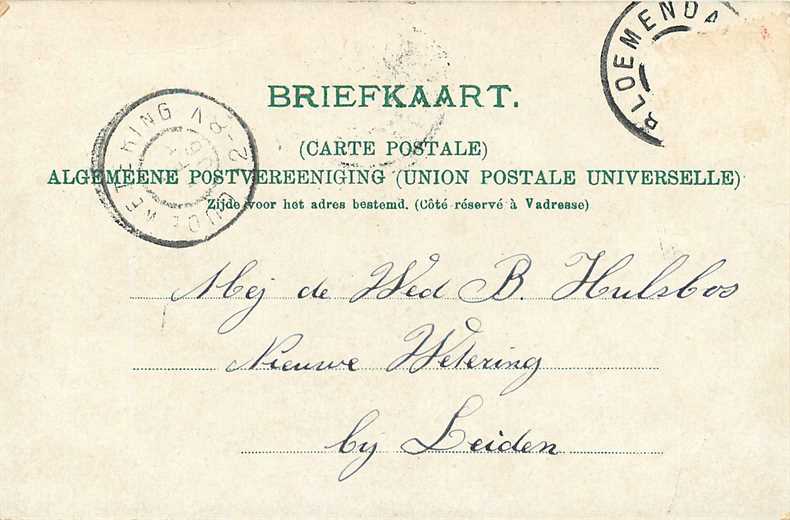 BLOEMENDA
BRIEFKAART.
(CARTE POSTALE)
ALGEMEENE POSTVEREENIGING (UNION POSTALE UNIVERSELLE)
Zijde voor het adres bestemd. (Côté réservé à Vadresse)
OUDEWETERING
Mej de Wed B. Hulsbos
Nieuwe Wetering
by Leiden